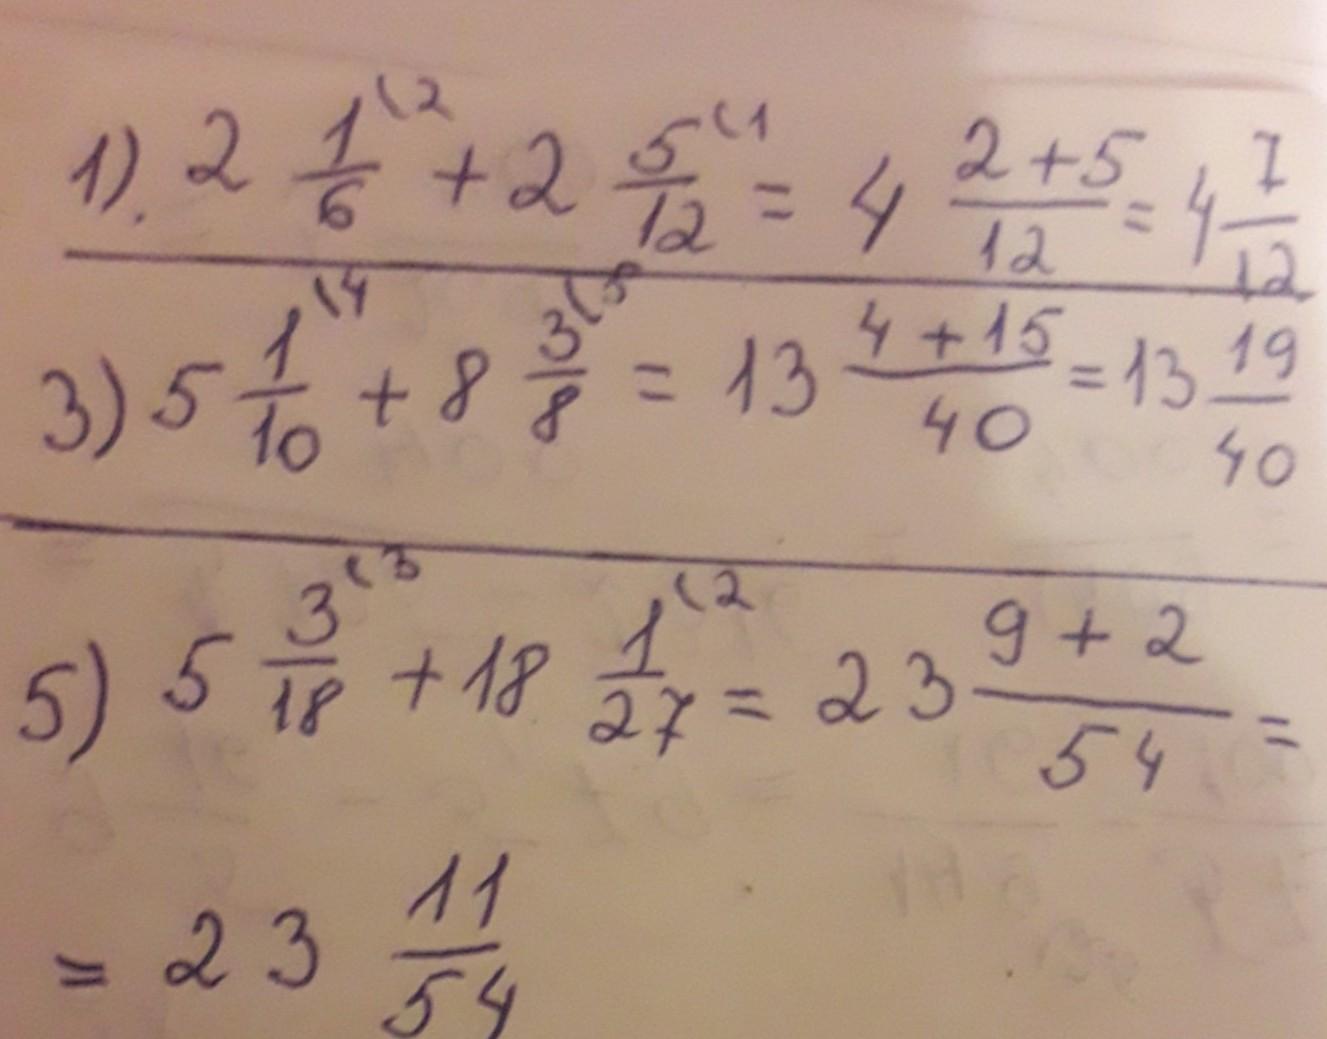 1). 2 1/6 (2 + 2 5/12 (1 = 4 (2+5)/12 = 4 7/12
3) 5 1/10 (4 + 8 3/8 (5 = 13 (4+15)/40 = 13 19/40
5) 5 3/18 (3 + 18 1/27 (2 = 23 (9+2)/54 =
= 23 11/54